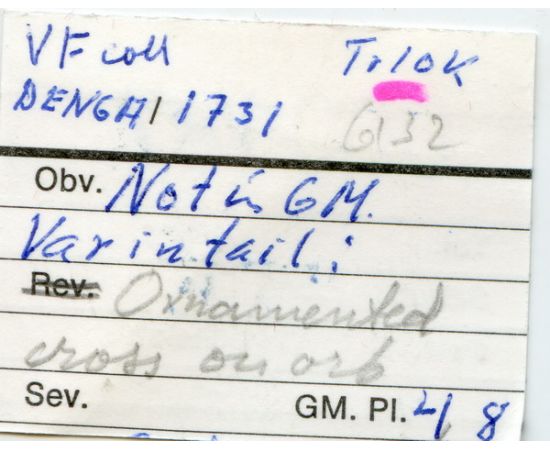 VF coll Tr10K
DENGA 1731 6132
Obv. Not in GM.
Var in tail:
Rev. Ornamented
cross on orb
Sev. GM. Pl. 4/8